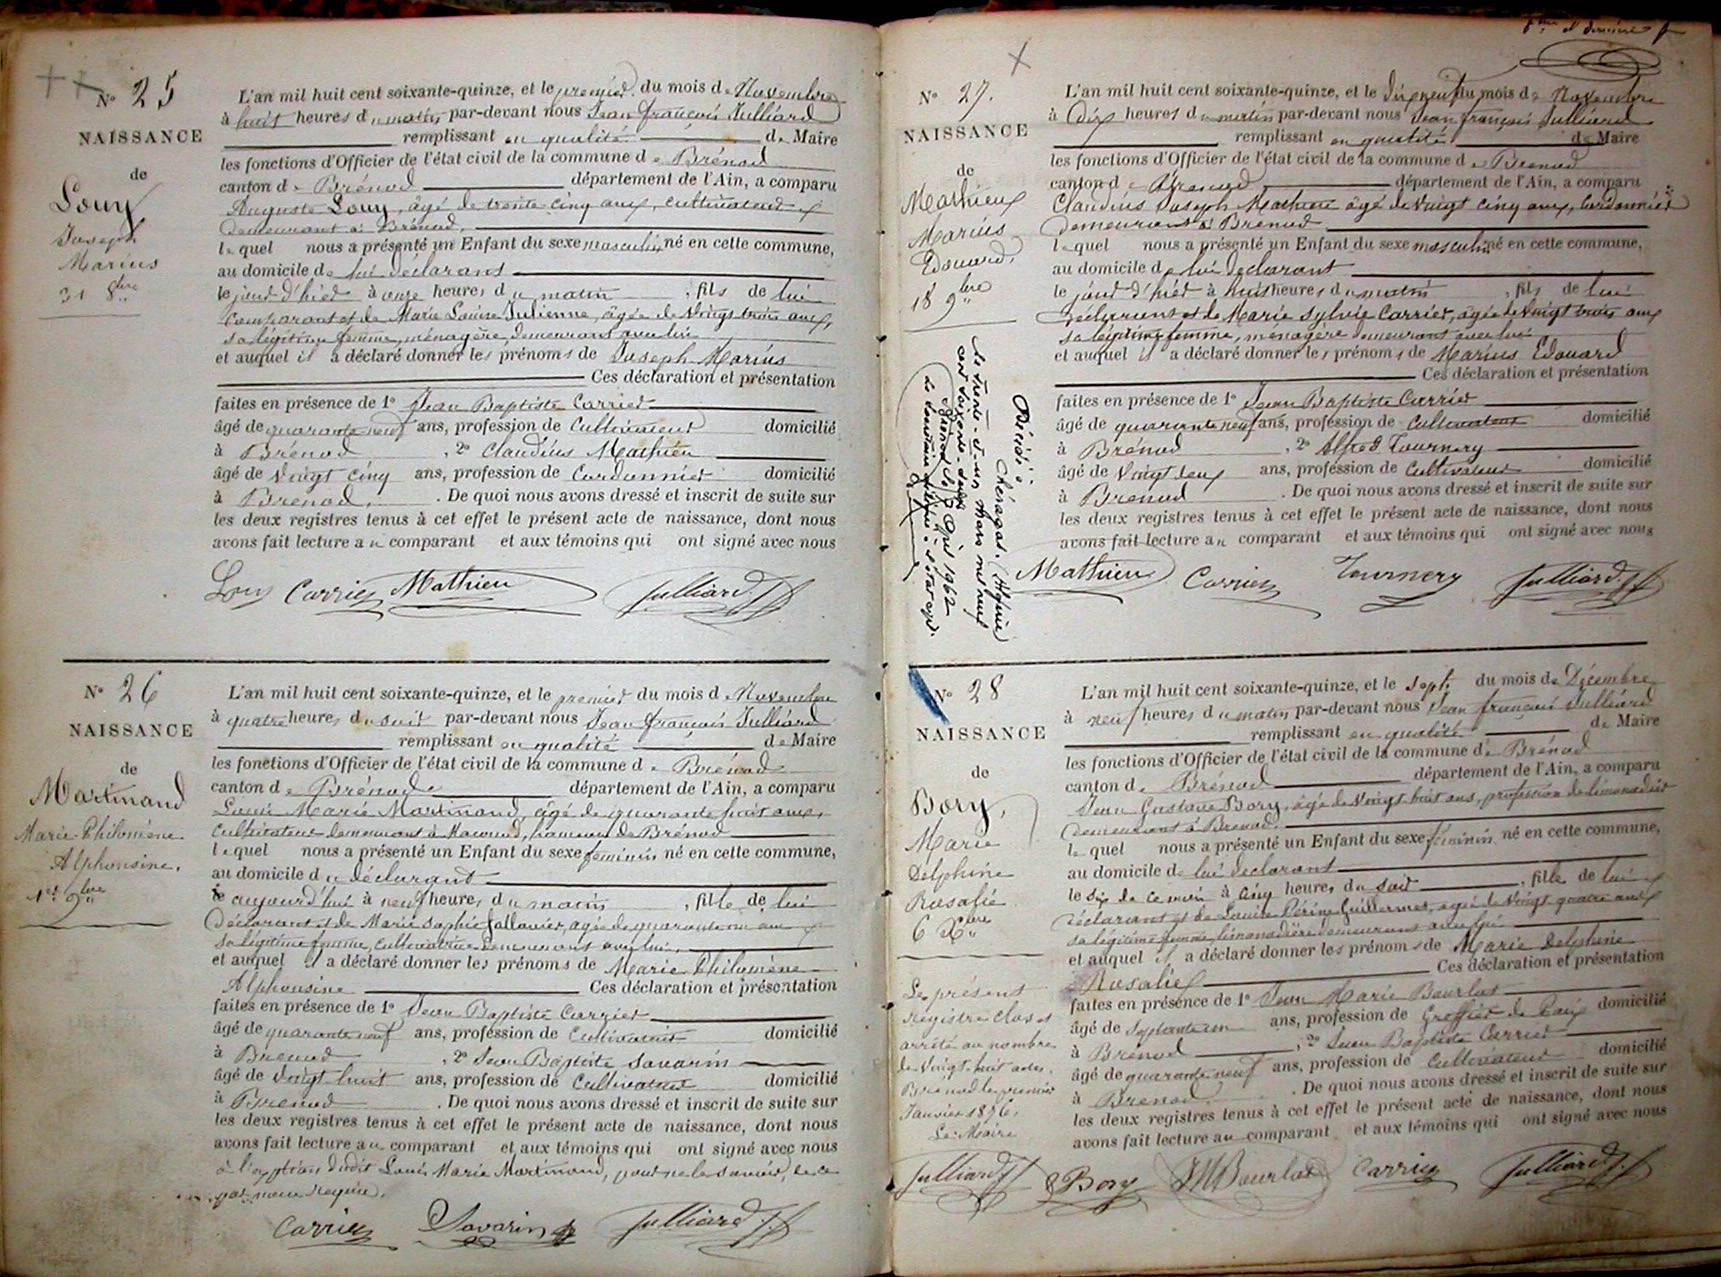 N° 25
NAISSANCE
de
Louy
Joseph
Marius
31 8bre
L'an mil huit cent soixante-quinze, et le premier du mois de Novembre
à huit heures du matin par-devant nous Jean françois Julliard
remplissant en qualité de Maire
les fonctions d'Officier de l'état civil de la commune de Brénod
canton de Brénod département de l'Ain, a comparu
Auguste Louy, âgé de trente cinq ans, cultivateur
demeurant à Brénod,
lequel nous a présenté un Enfant du sexe masculin né en cette commune,
au domicile de lui déclarant
le jour d'hier à onze heures du matin, fils de lui
comparant et de Marie Louise Julienne, âgée de vingt trois ans,
sa légitime femme, ménagère demeurant avec lui
et auquel il a déclaré donner les prénoms de Joseph Marius
Ces déclaration et présentation
faites en présence de 1° Jean Baptiste Carrier
âgé de quarante neuf ans, profession de Cultivateur domicilié
à Brénod, 2° Claudius Mathieu
âgé de Vingt cinq ans, profession de Cordonnier domicilié
à Brenod. De quoi nous avons dressé et inscrit de suite sur
les deux registres tenus à cet effet le présent acte de naissance, dont nous
avons fait lecture au comparant et aux témoins qui ont signé avec nous
Louy Carrier Mathieu Julliard J.f
N° 26
NAISSANCE
de
Martinand
Marie Philomène
Alphonsine.
1er 9bre
L'an mil huit cent soixante-quinze, et le premier du mois de Novembre
à quatre heures du soir par-devant nous Jean françois Julliard
remplissant en qualité de Maire
les fonctions d'Officier de l'état civil de la commune de Brénod
canton de Brénod département de l'Ain, a comparu
Louis Marie Martinand, âgé de quarante huit ans,
Cultivateur demeurant à Macconod, hameau de Brénod
lequel nous a présenté un Enfant du sexe féminin né en cette commune,
au domicile du déclarant
le aujourd'hui à neuf heures du matin, fille de lui
déclarant et de Marie Sophie fallavier, agée de quarante un ans
sa légitime femme, cultivatrice demeurant avec lui,
et auquel il a déclaré donner les prénoms de Marie Philomène
Alphonsine Ces déclaration et présentation
faites en présence de 1° Jean Baptiste Carrier
âgé de quarante neuf ans, profession de Cultivateur domicilié
à Brenod, 2° Jean Baptiste Savarin
âgé de Vingt huit ans, profession de Cultivateur domicilié
à Brenod. De quoi nous avons dressé et inscrit de suite sur
les deux registres tenus à cet effet le présent acte de naissance, dont nous
avons fait lecture au comparant et aux témoins qui ont signé avec nous
à l'exption dudit Louis Marie Martinand, pour ne le savoir, de ce
par nous requis.
Carrier Savarin Julliard J.f
me et dernière f
N° 27.
NAISSANCE
de
Mathieu
Marius
Edouard,
18 9bre
Décédé à Chézagas (Algérie)
le trente-et-un Mars mil neuf
cent soixante-deux
Brénod le 7 Avril 1962
L'an mil huit cent soixante-quinze, et le dix neuf du mois de Novembre
à Dix heures du matin par-devant nous Jean françois Julliard
remplissant en qualité de Maire
les fonctions d'Officier de l'état civil de la commune de Brenod
canton de Brenod département de l'Ain, a comparu
Claudius Joseph Mathieu âgé de Vingt cinq ans, Cordonnier
demeurant à Brenod
lequel nous a présenté un Enfant du sexe masculin né en cette commune,
au domicile de lui déclarant
le jour d'hier à huit heures du matin, fils de lui
déclarant et de Marie Sylvie Carrier, agée de Vingt trois ans
sa légitime femme, ménagère demeurant avec lui
et auquel il a déclaré donner les prénoms de Marius Edouard
Ces déclaration et présentation
faites en présence de 1° Jean Baptiste Carrier
âgé de quarante neuf ans, profession de Cultivateur domicilié
à Brénod, 2° Alfred Tournery
âgé de Vingt deux ans, profession de Cultivateur domicilié
à Brenod. De quoi nous avons dressé et inscrit de suite sur
les deux registres tenus à cet effet le présent acte de naissance, dont nous
avons fait lecture au comparant et aux témoins qui ont signé avec nous
Mathieu Carrier Tournery Julliard J.f
N° 28
NAISSANCE
de
Bory,
Marie
Delphine
Rosalie
6 Xbre
Le présent
registre clos et
arrêté au nombre
de Vingt-huit actes.
Brenod le premier
Janvier 1876.
Le Maire
Julliard J.f
L'an mil huit cent soixante-quinze, et le Sept du mois de Décembre
à neuf heures du matin par-devant nous Jean françois Julliard
remplissant en qualité de Maire
les fonctions d'Officier de l'état civil de la commune de Brénod
canton de Brénod département de l'Ain, a comparu
Jean Gustave Bory, âgé de Vingt huit ans, profession de limonadier
demeurant à Brenod.
lequel nous a présenté un Enfant du sexe féminin né en cette commune,
au domicile de lui déclarant
le six de ce mois à cinq heures du soir, fille de lui
déclarant et de Louise Périne Guillermet, agée de Vingt quatre ans
sa légitime femme, limonadière demeurant avec lui
et auquel il a déclaré donner les prénoms de Marie Delphine
Rosalie Ces déclaration et présentation
faites en présence de 1° Jean Marie Bourlat
âgé de Septante un ans, profession de Greffier de Paix domicilié
à Brénod, 2° Jean Baptiste Carrier
âgé de quarante neuf ans, profession de Cultivateur domicilié
à Brenod. De quoi nous avons dressé et inscrit de suite sur
les deux registres tenus à cet effet le présent acte de naissance, dont nous
avons fait lecture au comparant et aux témoins qui ont signé avec nous
G Bory JMBourlat Carrier Julliard J.f